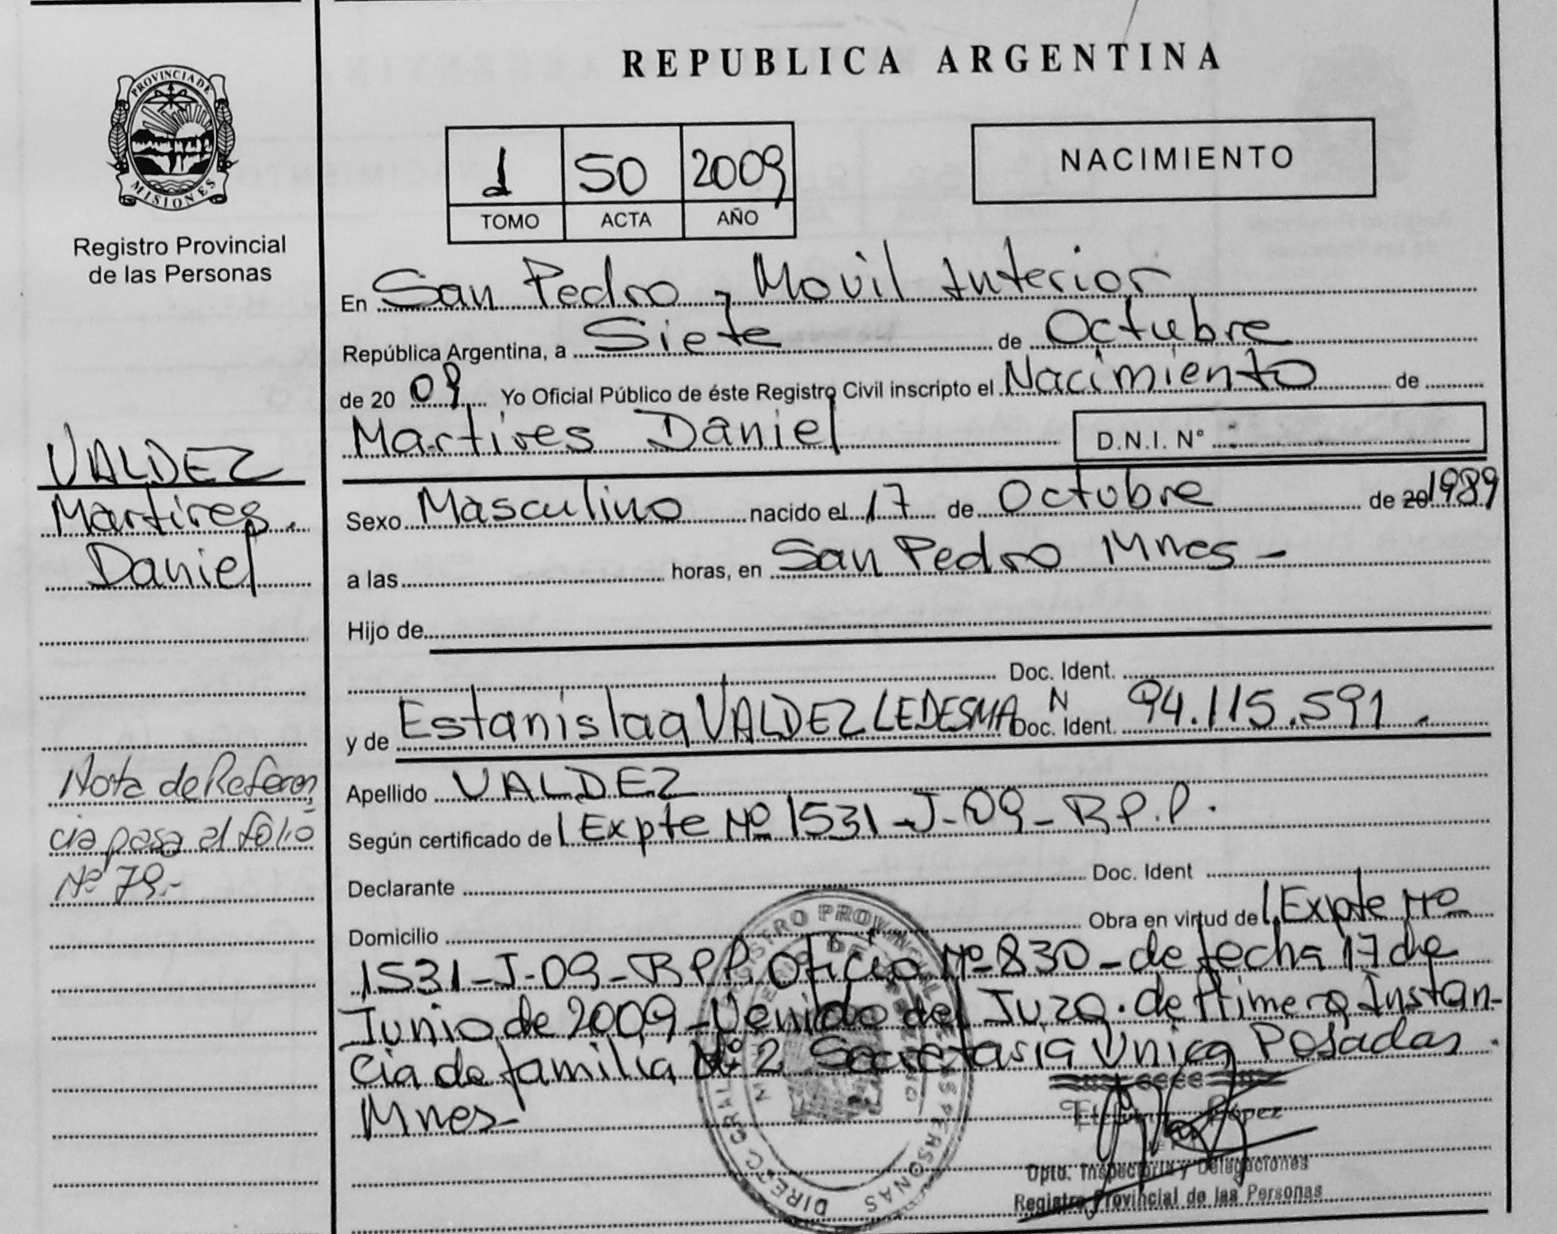 REPUBLICA ARGENTINA
PROVINCIA DE
MISIONES
Registro Provincial
de las Personas
1 50 2009
TOMO ACTA AÑO
NACIMIENTO
En San Pedro - Movil Interior
República Argentina, a Siete de Octubre
de 20 09 Yo Oficial Público de éste Registro Civil inscripto el Nacimiento de
Martires Daniel D.N.I. N°
VALDEZ
Martires
Daniel
Sexo Masculino nacido el 17 de Octubre de 20 1989
a las horas, en San Pedro Mnes -
Hijo de
Doc. Ident.
y de Estanislaa VALDEZ LEDESMA N Doc. Ident. 94.115.591
Apellido VALDEZ
Según certificado de l Expte Nº 1531-J-09-R.P.P.
Declarante Doc. Ident
Domicilio Obra en virtud de l Expte Nº
1531-J-09-R.P.P. Oficio Nº 830 - de fecha 17 de
Junio de 2009 - Venido del Juzg. de Primera Instan-
cia de familia Nº 2 Secretaria Unica Posadas
Mnes-
Nota de Referen
cia pasa al folio
Nº 79.-
López
Dpto. Inspectoria y Delegaciones
Registro Provincial de las Personas